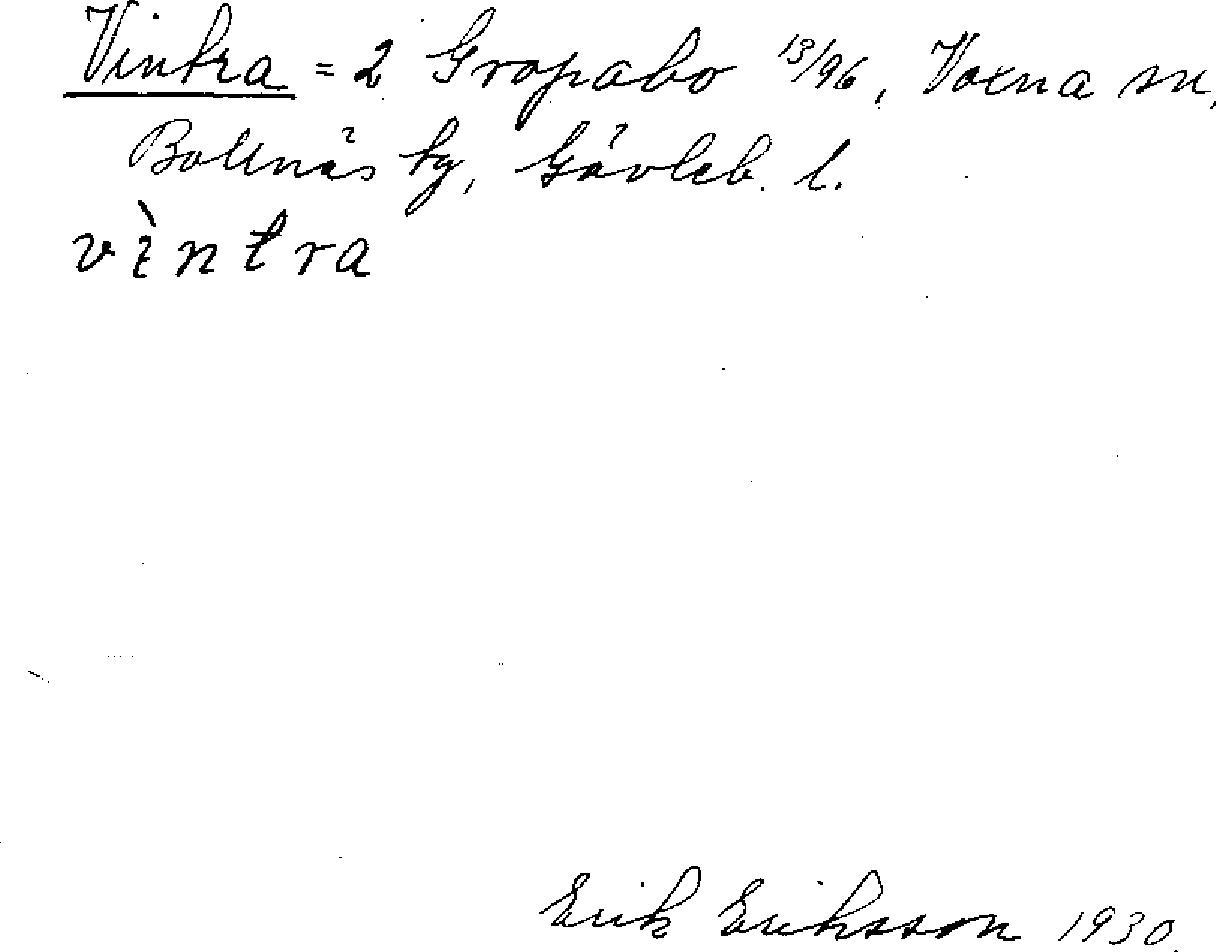 Vintra = 2 Gropabo 13/96, Voxna sn,
Bollnäs tg, Gävleb. l.
vìntra
Erik Eriksson 1930.